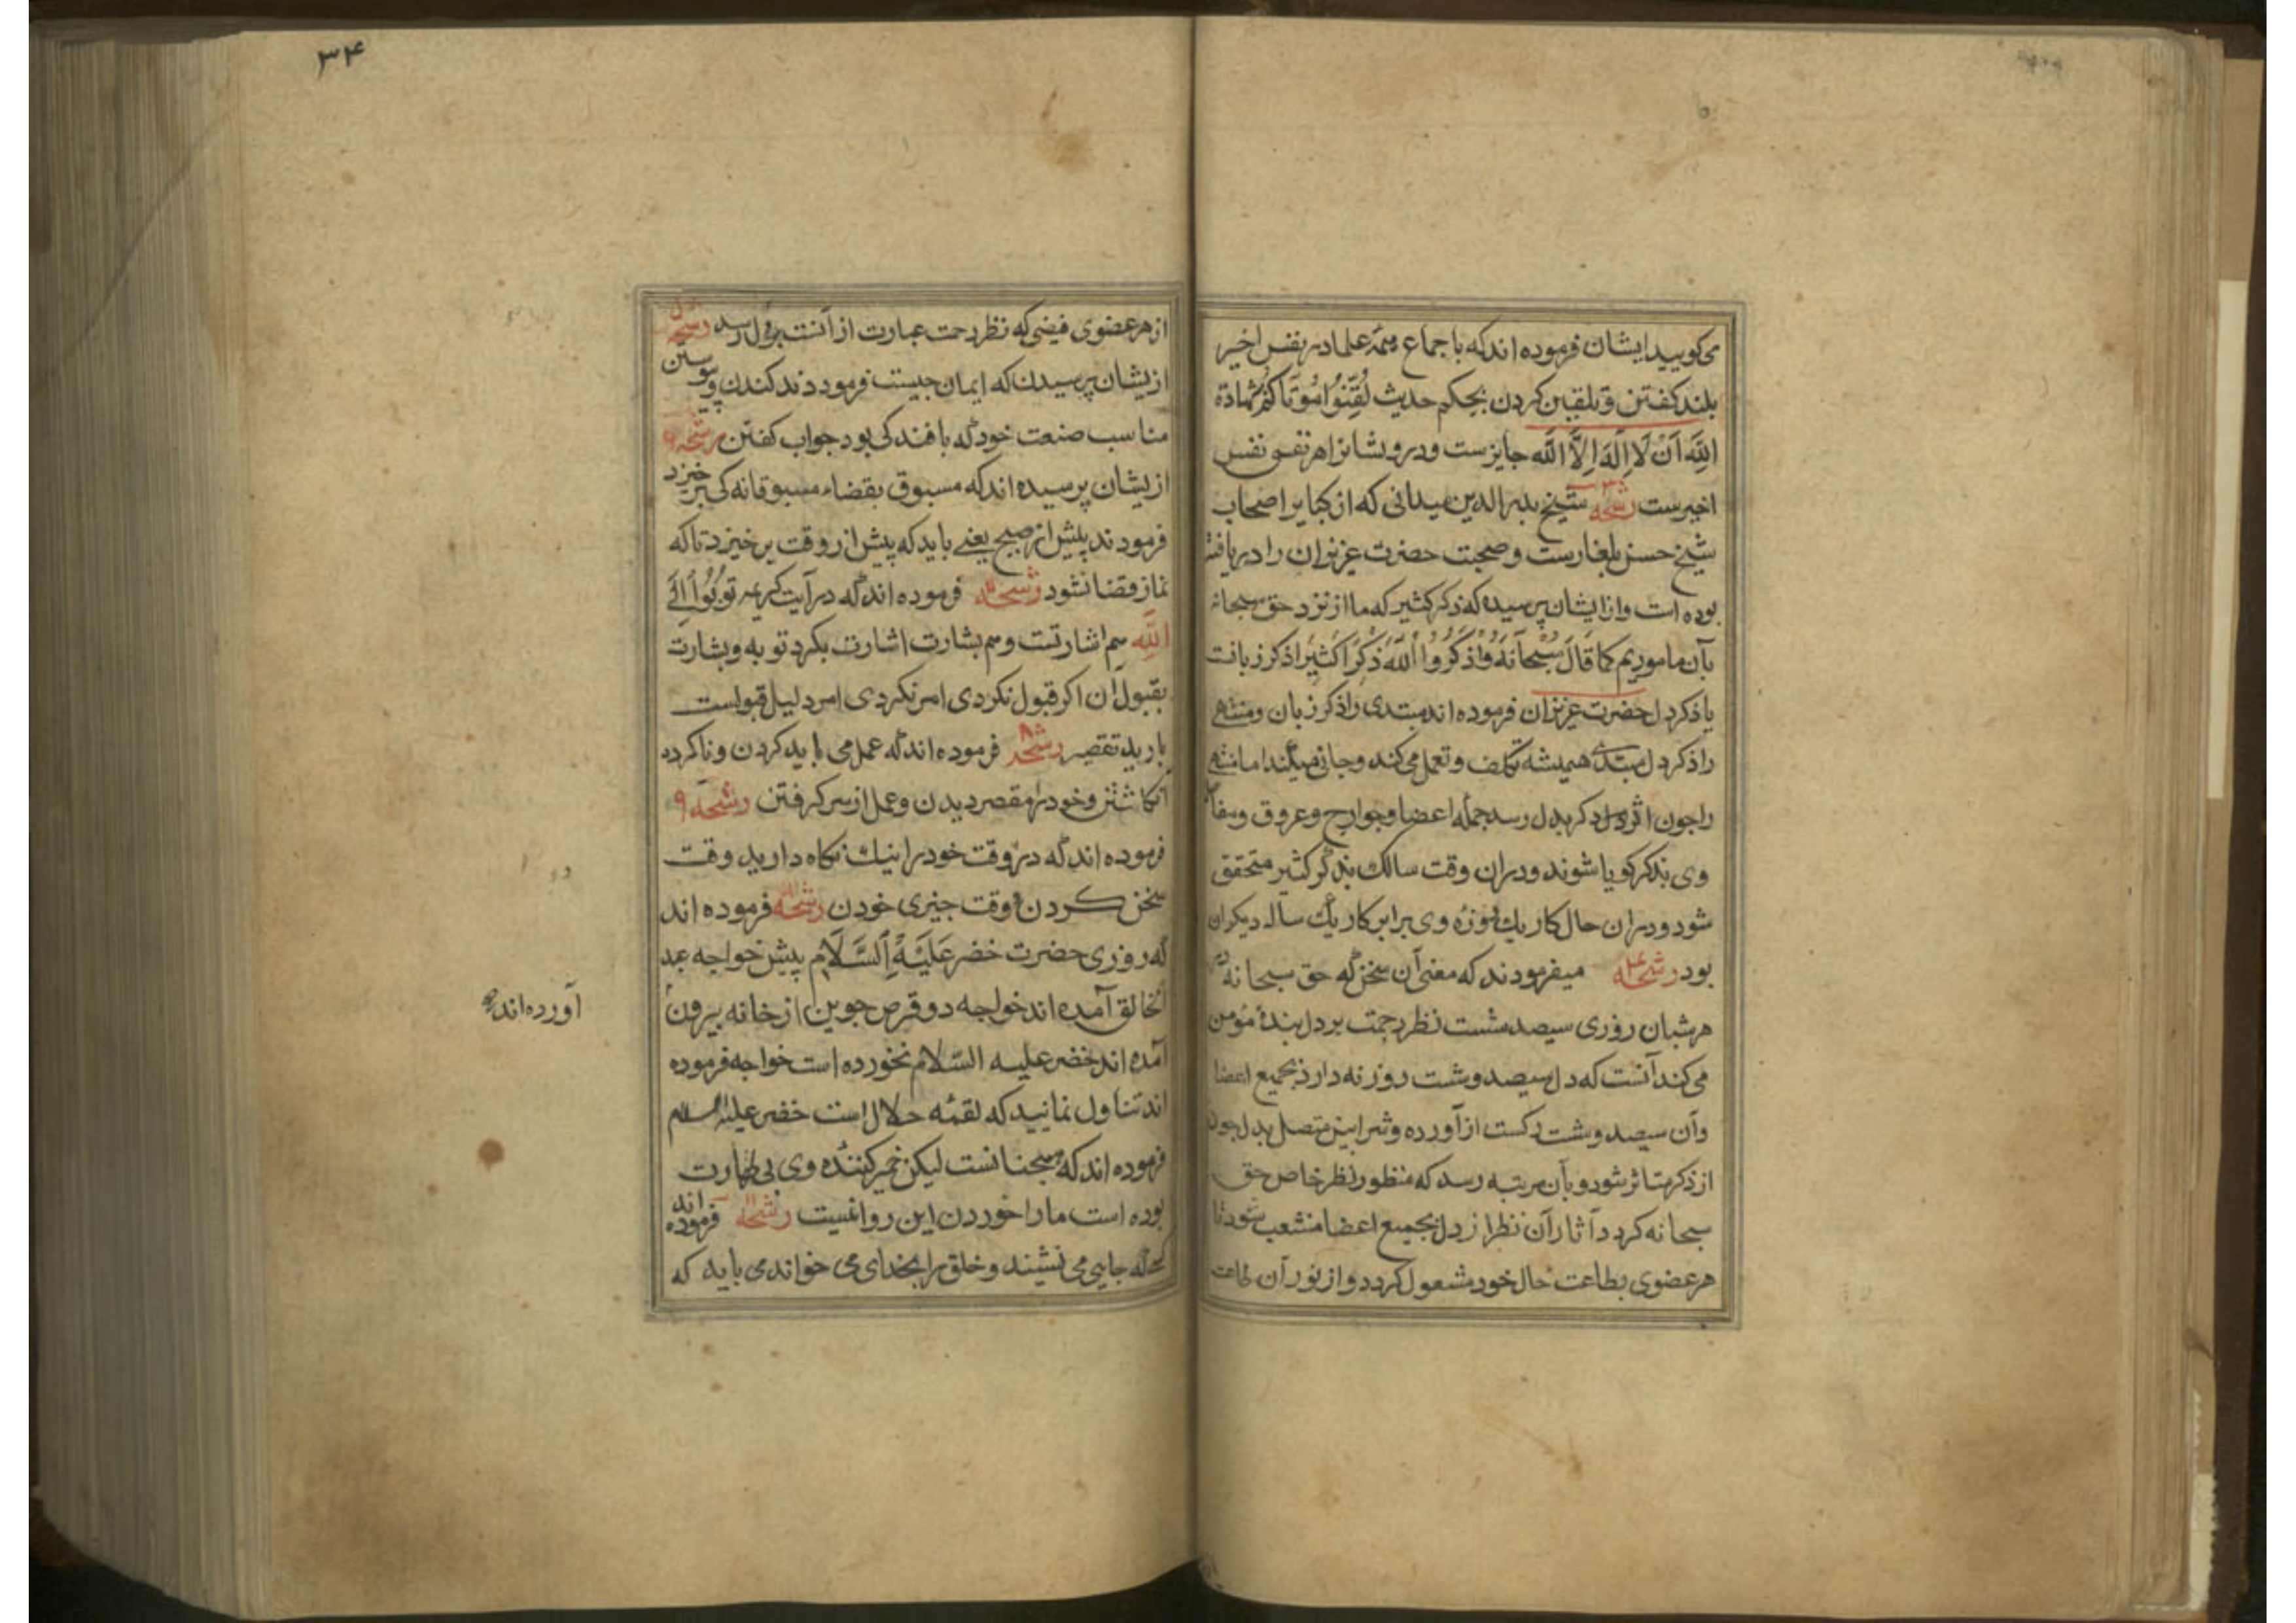 می کویید ایشان فرموده اند که با جماع همه علما در نفس اخیر
بلند کفتن و تلقین کردن بحکم حدیث لُقِّنُوا امُوتَاکُم شهادة
اللَّهِ اَنْ لَا اِلَهَ اِلَّا اللَّه جایزست و درویشانرا هر نفس نفس
اخیرست رشحه ۳ شیخ بدر الدین میدانی که از کبایر اصحاب
شیخ حسن بلغارست و صحبت حضرت عزیزان را دریافته
بوده است و از ایشان پرسیده که ذکر کثیر که ما از نزد حق سبحانه
بآن ماموریم کما قَالَ سُبْحَانَهُ وَاُذْکُرُوا اللَّهَ ذِکْرًا کَثِیرًا ذکر زبانت
یا ذکر دل حضرت عزیزان فرموده اند مبتدی را ذکر زبان و منتهی
را ذکر دل مبتدی همیشه تکلف و تعمل می کند و جان میکند اما منتهی
را چون اثر ذکر بدل رسد جمله اعضا و جوارح و عروق و
وی بذکر کویا شوند و دران وقت سالک بذکر کثیر متحقق
شود و دران حال کار یک روزه وی برابر کار یک ساله دیکران
بود رشحه ۴ میفرمودند که معنی آن سخن که حق سبحانه در
هر شبان روزی سیصد شست نظر رحمت بر دل بندهٔ مؤمن
می کند آنست که دل سیصد و شست روزنه دارد بجمیع اعضا
و آن سیصد و شست رکست از آورده و شرایین متصل بدل چون
از ذکر متاثر شود و بآن مرتبه رسد که منظور نظر خاص حق
سبحانه کردد آثار آن نظر از دل بجمیع اعضا منشعب شود تا
هر عضوی بطاعت حال خود مشغول کردد و از نور آن طاعت
۳۴
از هر عضوی فیضی که نظر رحمت عبارت از آنست بدل رسد رشحه
از یشان پرسیدن که ایمان چیست فرمودند کندن و پیوستن
مناسب صنعت خود که بافندکی بود جواب کفتن رشحه ۶
از یشان پرسیده اند که مسبوق بقضاء مسبوقانه کی برخیزد
فرمودند پیش از صبح یعنی باید که پیش از وقت برخیزد تا که
نماز قضا نشود رشحه فرموده اند که در آیت کریمه تُوبُوا اِلَی
اللَّهِ هم اشارتست و هم بشارت اشارت بکرد توبه و بشارت
بقبول آن اکر قبول نکردی امر نکردی امر دلیل قبولست
با رید تقصیر رشحه ۸ فرموده اند که عمل می باید کردن و ناکرده
انکاشتن و خود را مقصر دیدن و عمل از سر کرفتن رشحه ۹
فرموده اند که در وقت خود را نیک نکاه دارید وقت
سخن کردن و وقت چیزی خوردن رشحه فرموده اند
که روزی حضرت خضر عَلَیْهِ السَّلَام پیش خواجه عبد
الخالق آمده اند خواجه دو قرص جوین از خانه بیرون
آورده اند
آمده اند خضر علیه السّلام نخورده است خواجه فرموده
اند تناول نمایید که لقمه حلال است خضر علیه السلام
فرموده اند که همچنانست لیکن خمیر کننده وی بی طهارت
بوده است ما را خوردن این روا نیست رشحه فرموده اند
که جایی می نشیند و خلق را بخدای می خواند می باید که